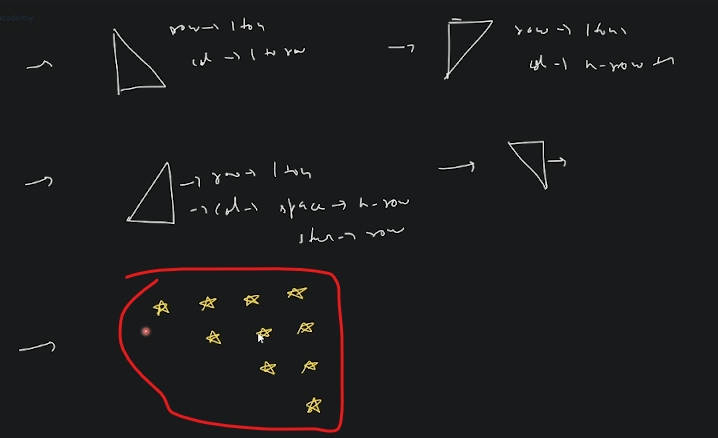 academy
row → 1 to n
col → 1 to row
row → 1 to n
col → n-row+1
→ row → 1 to n
→ col → space → n-row
star → row